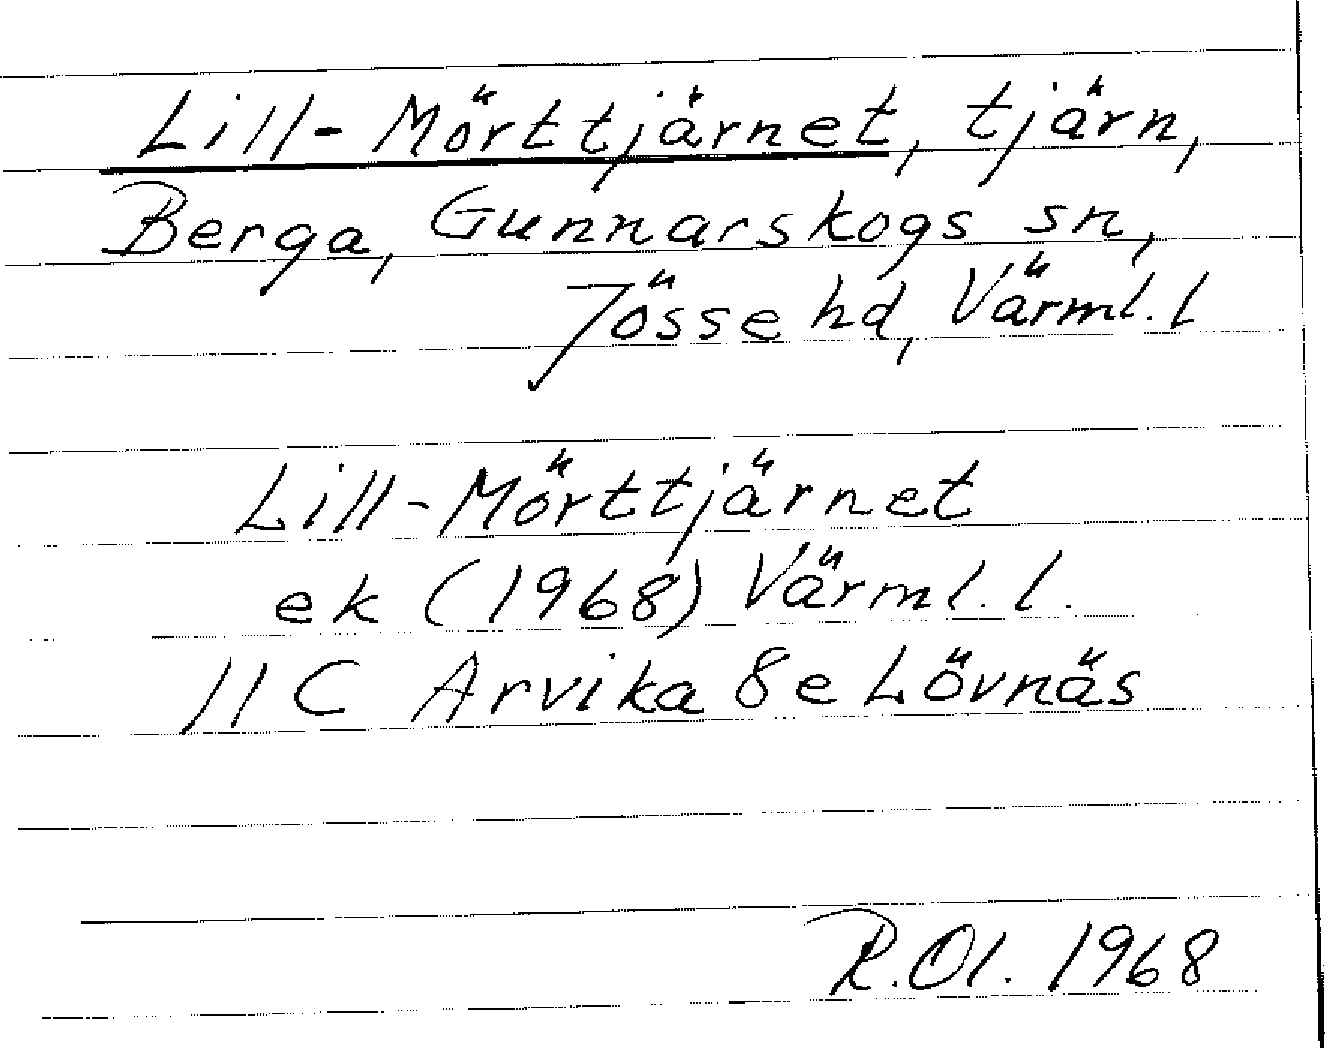 Lill-Mörttjärnet, tjärn,
Berga, Gunnarskogs sn,
Jösse hd, Värml. l
Lill-Mörttjärnet
ek (1968) Värml. l.
11 C Arvika 8e Lövnäs
R.Ol. 1968